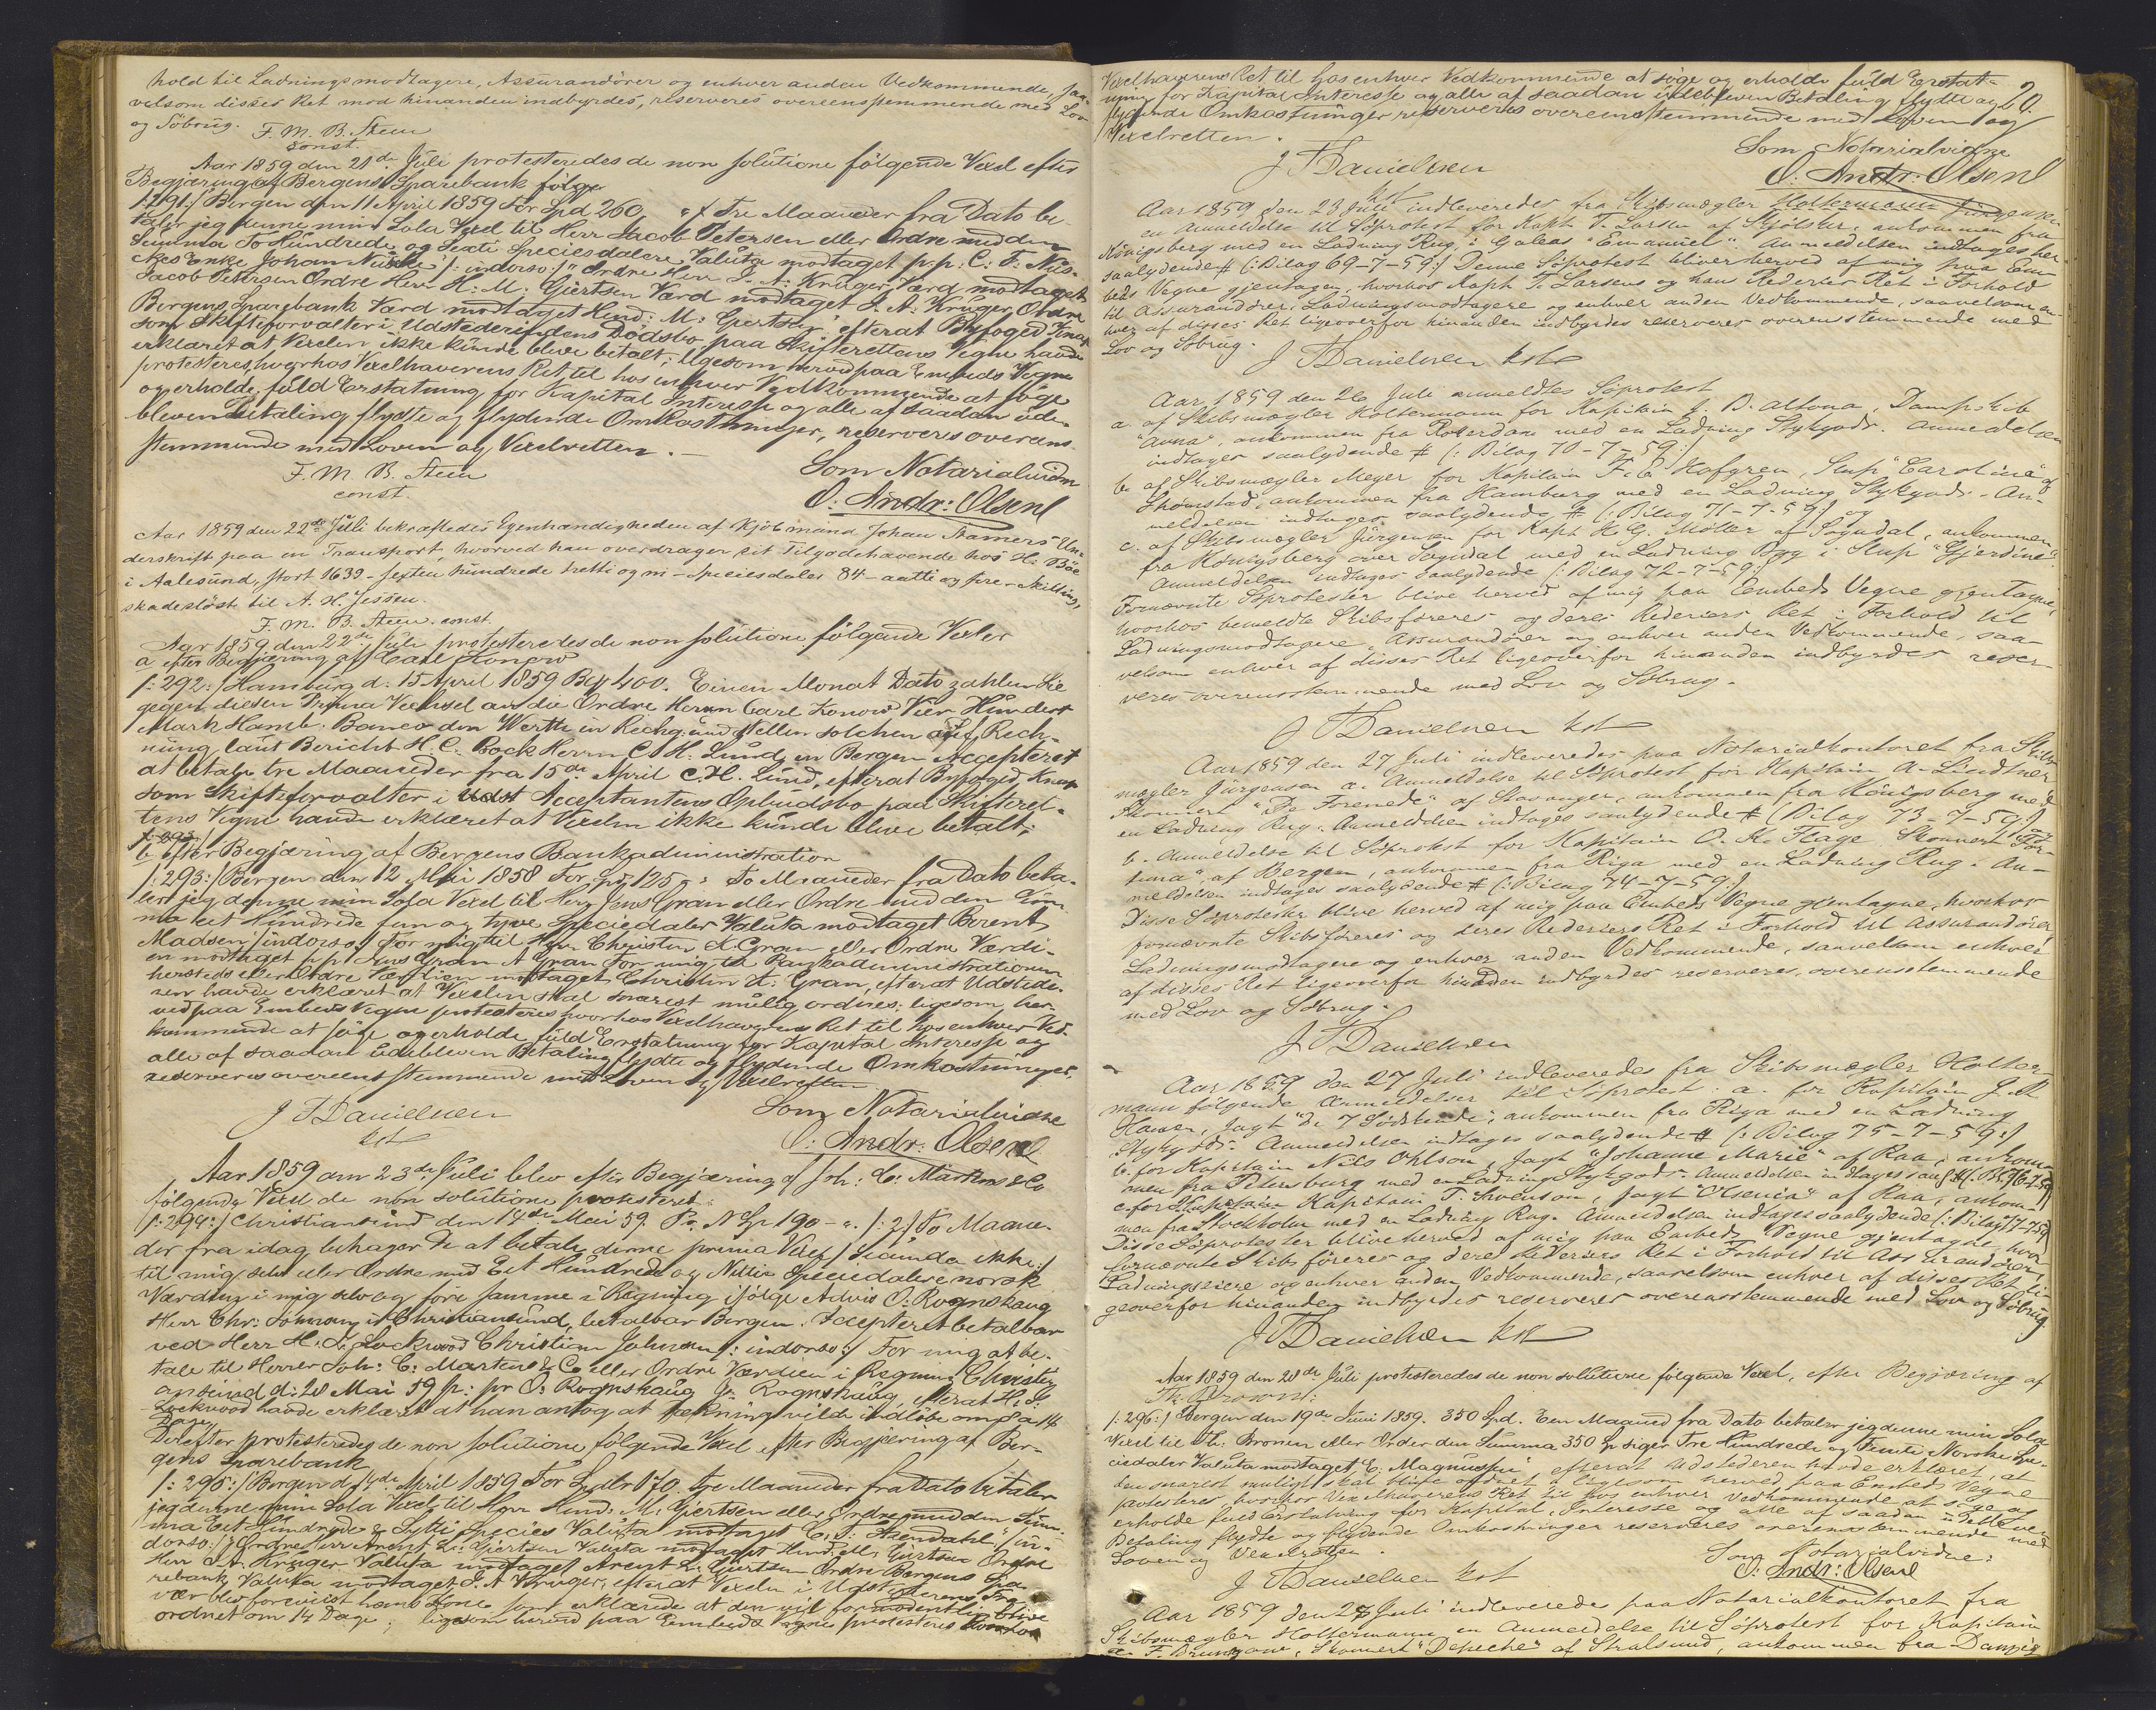 hold til Ladningsmodtagere, Assurandörer og enhver anden Vedkommende, saa-
velsom disses Ret mod hinanden indbyrdes, reserveres overeensstemmende med Lov
og Söbrug.
F. M. B. Steen
const.
Aar 1859 den 21de Juli protesteredes de non solutione fölgende Vexel efter
Begjæring af Bergens Sparebank fölge
/:291:/ Bergen den 11 April 1859 For Spd 260, Tre Maaneder fra Dato be-
taler jeg denne min Sola Vexel til Herr Jacob Petersen eller Ordre med den
Summa To Hundrede og Sexti Speciesdalere Valuta modtaget p.p. C. F. Nüs-
ches Enke Johan Nüsche /: indorso:/ Ordre Herr J. A. Krüger Værd modtaget
Jacob Petersen Ordre Herr H. M. Gjertsen Værd modtaget J. A. Krüger, Ordre
Bergens Sparebank Værd modtaget Hend: M: Gjertsen efterat Byfoged Knap
som Skifteforvalter i Udstederindens Dödsbo paa Skifterettens Vegne havde
erklæret at Vexelen ikke kunde blive betalt; ligesom herved paa Embeds Vegne
protesteres, hvorhos Vexelhaverens Ret til hos enhver Vedkommende at söge
og erholde fuld Erstatning for Kapital Interesse og alle af saadan ude-
bleven Betaling flydte og flydende Omkostninger, reserveres overens-
stemmende med Loven og Vexelretten.
F. M. B. Steen
const.
Som Notarialvidne
O: Andr: Olsen
Aar 1859 den 22de Juli bekræftedes Egenhændigheden af Kjöbmand Johan Stamers Un-
derskrift paa en Transport, hvorved han overdrager sit Tilgodehavende hos H. Böe
i Aalesund, stort 1639 - sexten hundrede tretti og ni - Speciesdaler 84 - aatti og fire - Skilling,
skadeslöst til A. H. Jessen.
F. M. B. Steen const.
Aar 1859 den 22de Juli protesteredes de non solutione fölgende Vexler
a efter Begjæring af Carl Konow
/:292:/ Hamburg d. 15 April 1859 Bco 400. Einen Monat Dato zahlen Sie
gegen diesen Prima Wechsel an die Ordre Herrn Carl Konow Vier Hundert
Mark Hamb. Banco den Werth in Rechg und stellen solchen auf Rech-
nung laut Bericht H. C. Bock Herrn C. H. Lund in Bergen Accepteret
at betale tre Maaneder fra 15de April C. H. Lund, efterat Byfoged Knap
som Skifteforvalter i Udst Acceptantens Opbudsbo paa Skifteret-
tens Vegne havde erklæret at Vexelen ikke kunde blive betalt;
b efter Begjæring af Bergens Bankadministration
/:293:/ Bergen den 12 Mai 1858 For Spd 125 To Maaneder fra Dato beta-
ler jeg denne min Sola Vexel til Herr Jens Gran eller Ordre med den Sum-
ma eet Hundrede fem og tyve Speciedaler Valuta modtaget Berent
Madsen /indorso:/ For mig til Herr Christen K Gran eller Ordre Værdi-
en modtaget p.p. Jens Gran A Gran For mig til Bankadministrationen
hersteds eller Ordre Værdien modtaget Christen K. Gran, efterat Udstede-
ren havde erklæret at Vexelen skal snarest mulig ordnes; ligesom her-
ved paa Embeds Vegne protesteres hvorhos Vexelhaverens Ret til hos enhver Ved-
kommende at söge og erholde fuld Erstatning for Kapital Interesse og
alle af saadan Udebleven Betaling flydte og flydende Omkostninger,
reserveres overeensstemmende med Loven og Vexelretten
J F Danielsen
kst
Som Notarialvidne
O: Andr: Olsen
Aar 1859 den 23de Juli blev efter Begjæring af Joh: C: Martens & Co
fölgende Vexel de non solutione protesteret:
/:294:/ Christiansund den 14de Mai 59. Pr. N Sp 190 - /:2:/ To Maane-
der fra idag behager De at betale denne prima Vexel /secunda ikke:/
til mig selv eller Ordre med Eet Hundrede og Nitti Speciedalere norsk
Værdien i mig selv og före samme i Regning ifölge Advis O. Rognshaug
Herr Chr: Johnsen i Christiansund, betalbar Bergen. Accepteret betalbar
ved Herr H. D. Lockwood Christian Johnsen /: indorso:/ For mig at be-
tale til Herrer Joh: C: Martens & Co eller Ordre Værdien i Regning Christi-
ansund d: 20 Mai 59 p: pr O: Rognshaug Jr. Rognshaug, efterat H. D.
Lockwood havde erklæret at han antog at Dekning vilde indlöbe om 8 a 14
Dage
Derefter protesteredes de non solutione fölgende Vexel efter Begjæring af Ber-
gens Sparebank
/:295:/ Bergen d. 14de April 1859 For Spdlr 170. tre Maaneder fra Dato betaler
jeg denne min Sola Vexel til Herr Hend: M. Gjertsen eller Ordre med den Sum-
ma Eet Hundrede & Sytti Species Valuta modtaget C. S. Steendahl /in-
dorso:/ Ordre Herr Arent L. Gjertsen Valuta modtaget Hend. M. Gjertsen Ordre
Herr J. A. Krüger Valuta modtaget Arent L. Gjertsen Ordre Bergens Spa-
rebank Valuta modtaget J. A. Krüger, efterat Vexelen i Udstederens Fra-
vær blev forevist hans Kone som erklærede at den vil formodentlig blive
ordnet om 14 Dage; ligesom herved paa Embeds Vegne protesteres hvorhos
Vexelhaverens Ret til hos enhver Vedkommende at söge og erholde fuld Erstat-
20.
ning for Kapital Interesse og alle af saadan udebleven Betaling flydte og
flydende Omkostninger reserveres overensstemmende med Loven og
Vexelretten.
J F Danielsen
kst
Som Notarialvidne
O: Andr: Olsen
Aar 1859 den 23 Juli indleveredes fra Skibsmægler Holtermann Jürgensen
en Anmeldelse til Söprotest for Kapt. T. Larsen af Skjölster, ankommen fra
Königsberg med en Ladning Rug, i Galeas "Emanuel". Anmeldelsen indtages her
saalydende # (:Bilag 69-7-59:) Denne Söprotest bliver herved af mig paa Em-
beds Vegne gjentagen, hvorhos Kapt. T. Larsens og hans Rederies Ret i Forhold
til Assurandörer, Ladningsmodtagere og enhver anden Vedkommende, saavelsom en-
hver af disses Ret ligeoverfor hinanden indbyrdes reserveres overensstemmende med
Lov og Söbrug.
J F Danielsen kst
Aar 1859 den 26 Juli anmeldtes Söprotest
a. af Skibsmægler Holtermann for Kapitain J. B. Altona, Dampskib
"Anna", ankommen fra Roterdam med en Ladning Stykgods. Anmeldelsen
indtages saalydende # (: Bilag 70-7-59:)
b. af Skibsmægler Meyer for Kapitain F. E. Hofgren, Slup "Carolina" af
Strömstad, ankommen fra Hamburg med en Ladning Stykgods. An-
meldelsen indtages saalydende # (: Bilag 71-7-59:) og
c. af Skibsmægler Jürgensen for Kapt. H. G. Möller af Sogndal, ankommen
fra Königsberg over Sogndal med en Ladning Byg i Slup "Gjerdine".
Anmeldelsen indtages saalydende (: Bilag 72-7-59:)
Fornævnte Söprotester blive herved af mig paa Embeds Vegne gjentagne,
hvorhos bemeldte Skibsföreres og deres Rederiers Ret i Forhold til
Ladningsmodtagere, Assurandörer og enhver anden Vedkommende, saa-
velsom enhver af disses Ret ligeoverfor hinanden indbyrdes reser-
veres overensstemmende med Lov og Söbrug.
J F Danielsen kst
Aar 1859 den 27 Juli indleveredes paa Notarialkontoret fra Skibs-
mægler Jürgensen a. Anmeldelse til Söprotest for Kapitain A. Lindtner
Skonnert "De Forenede" af Stavanger, ankommen fra Königsberg med
en Ladning Rug. Anmeldelsen indtages saalydende # (Bilag 73-7-59:)
b. Anmeldelse til Söprotest for Kapitain O. K. Hage Skonnert "For-
tuna" af Bergen, ankommen fra Riga med en Ladning Rug. An-
meldelsen indtages saalydende # (: Bilag 74-7-59:)
Disse Söprotester blive herved af mig paa Embeds Vegne gjentagne, hvorhos
fornævnte Skibsföreres og deres Rederiers Ret i Forhold til Assurandörer,
Ladningsmodtagere og enhver anden Vedkommende, saavelsom enhver
af disses Ret ligeoverfor hinanden indbyrdes reserveres, overensstemmende
med Lov og Söbrug.
J F Danielsen
Aar 1859 den 27 Juli indleveredes fra Skibsmægler Holter-
mann fölgende Anmeldelser til Söprotest. a. for Kapitain J. R.
Hansen, Jagt "De 7 Södskende", ankommen fra Riga med en Ladning
Stykgods. Anmeldelsen indtages saalydende # (: Bilag 75-7-59:)
b. for Kapitain Nils Ohlson, Jagt "Johanne Marie" af Raa, ankom-
men fra Petersburg med en Ladning Stykgods. Anmeldelsen indtages saal # (: Bl. 76-7-59)
c. for Kapitain T. Svenson, Jagt "Olsenia" af Raa, ankom-
men fra Stockholm med en Ladning Rug. Anmeldelsen indtages saalydende (: Bilag 77-7-59)
Disse Söprotester blive herved af mig paa Embeds Vegne gjentagne hvor-
fornævnte Skibsföreres og deres Rederiers Ret i Forhold til Assurandörer,
Ladningseiere og enhver anden Vedkommende, saavelsom enhver af disses Ret li-
geoverfor hinanden indbyrdes reserveres overensstemmende med Lov og Söbrug.
J F Danielsen kst
Aar 1859 den 28de Juli protesteredes de non solutione fölgende Vexel, efter Begjæring af
Th. Bronn:
/:296:/ Bergen den 19de Juni 1859. 350 Spd. Een Maaned fra Dato betaler jeg denne min Sola
Vexel til Th. Bronn eller Ordre den Summa 350 Sp siger Tre Hundrede og Femti Norske Spe-
ciedaler Valuta modtaget C. Magnussen efterat Udstederen havde erklæret, at
den snarest muligt skal blive ordnet, ligesom herved paa Embeds Vegne
protesteres hvorhos Vexelhaverens Ret til hos enhver Vedkommende at söge og
erholde fuld Erstatning for Kapital, Interesse og alle af saadan udebleven
Betaling flydte og flydende Omkostninger reserveres overensstemmende med
Loven og Vexelretten.
J F Danielsen kst
Som Notarialvidne:
O: Andr: Olsen
Aar 1859 den 28 Juli indleveredes paa Notarialkontoret fra
Skibsmægler Holtermann en Anmeldelse til Söprotest for Kapitain
F. Brungow, Skonnert "Depeche" af Stralsund, ankommen fra Danzig